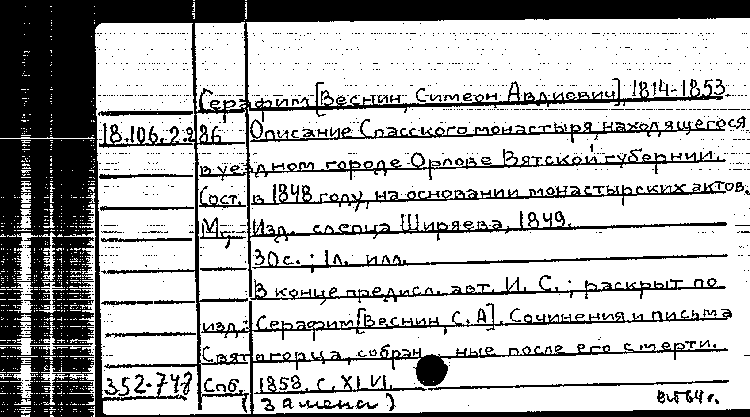 Серафим [Веснин, Симеон Авдиевич], 1814-1853
18.106.2.286 Описание Спасского монастыря, находящегося
в уездном городе Орлове Вятской губернии.
Сост. в 1848 году, на основании монастырских актов.
М., Изд. слепца Ширяева, 1849.
30 с. ; 1 л. илл.
В конце предисл. авт. И. С. ; раскрыт по
изд.: Серафим [Веснин, С. А]. Сочинения и письма
Святогорца, собран ные после его смерти.
352-748 Спб, 1858. с. XLVI.
(Замена)